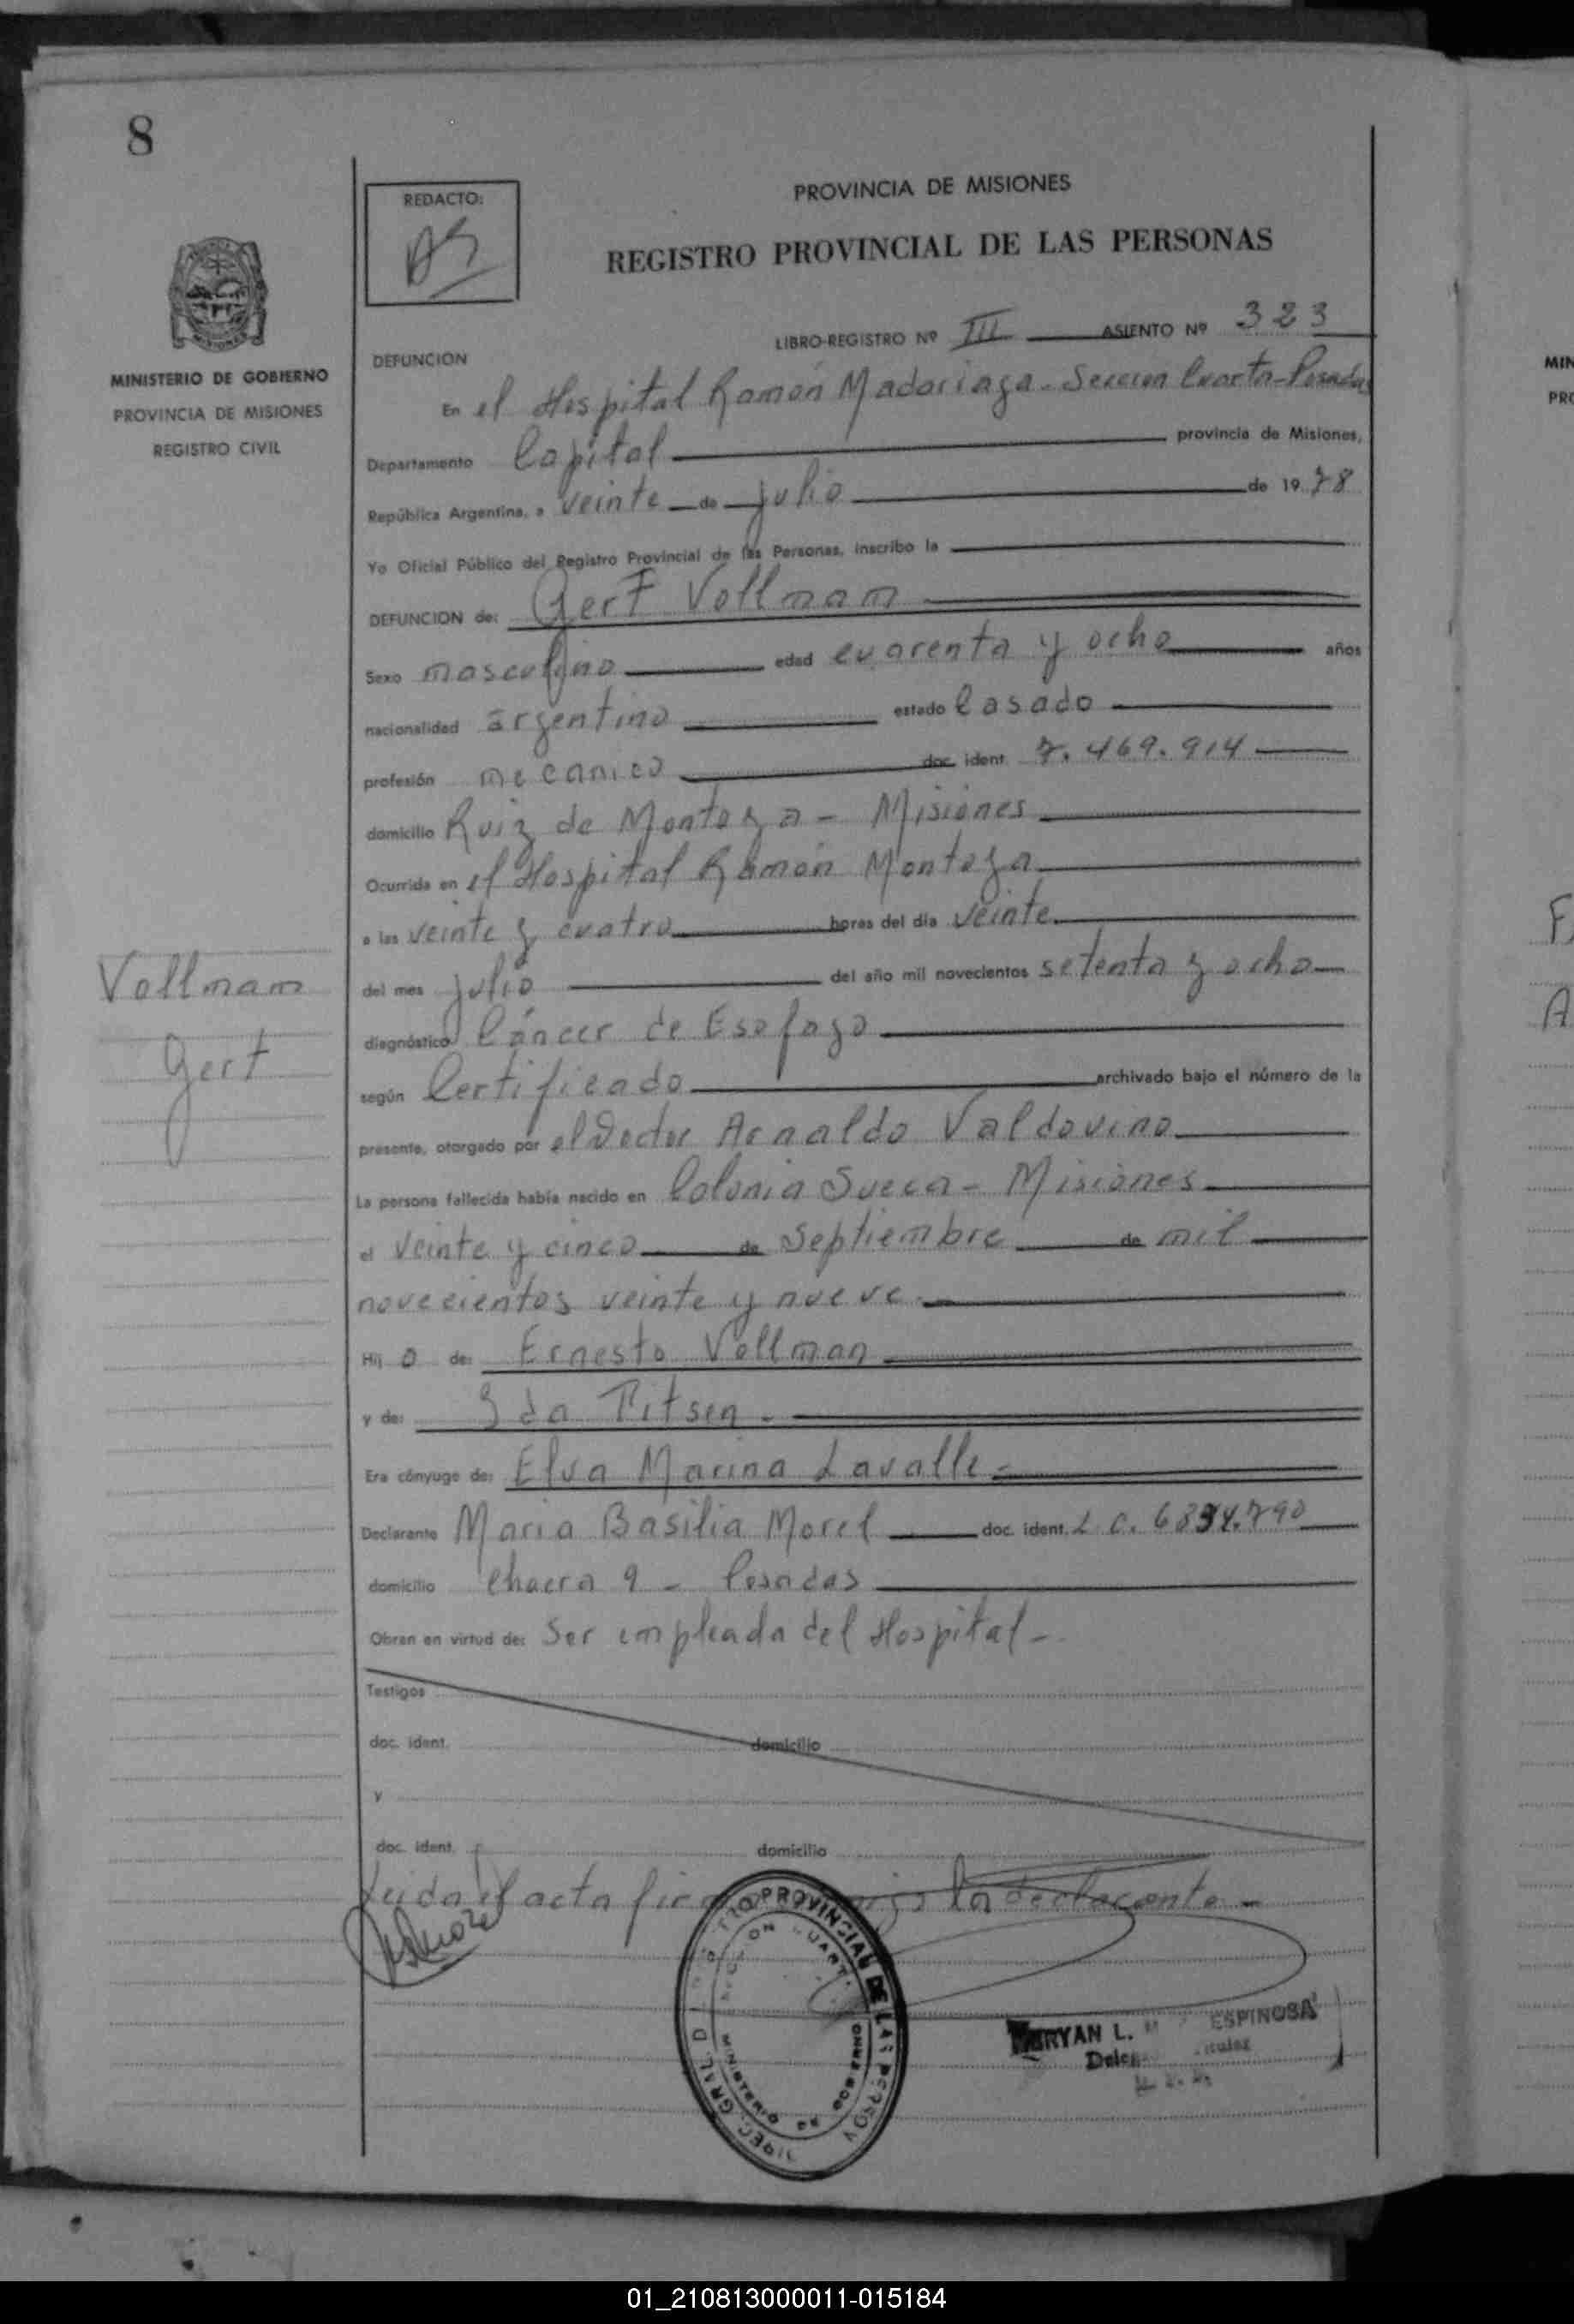 8
REDACTO:
PROVINCIA DE MISIONES
REGISTRO PROVINCIAL DE LAS PERSONAS
MINISTERIO DE GOBIERNO
PROVINCIA DE MISIONES
REGISTRO CIVIL
LIBRO-REGISTRO Nº III ASIENTO Nº 323
DEFUNCION
En el Hospital Ramón Madariaga - Sección Cuarta - Posadas
Departamento Capital provincia de Misiones,
República Argentina, a veinte de julio de 1978
Yo Oficial Público del Registro Provincial de las Personas, inscribo la
DEFUNCION de: Gert Vollmam
Sexo masculino edad cuarenta y ocho años
nacionalidad argentino estado Casado
profesión mecanico doc. ident. 7.469.914
domicilio Ruiz de Montoya - Misiones
Ocurrida en el Hospital Ramón Montoya
a las veinte y cuatro horas del día veinte
del mes julio del año mil novecientos setenta y ocho
Vollmam
Gert
diagnóstico Cáncer de Esofago
según Certificado archivado bajo el número de la
presente, otorgado por el Doctor Arnaldo Valdovino
La persona fallecida había nacido en Colonia Sueca - Misiones
el veinte y cinco de Septiembre de mil
novecientos veinte y nueve.
Hij o de: Ernesto Vollman
y de: Ida Titsen.
Era cónyuge de: Elva Marina Lavalle
Declarante Maria Basilia Morel doc. ident. L C.
domicilio Chacra 9 - Posadas
Obran en virtud de: Ser empleada del Hospital -
Testigos
doc. ident. domicilio
y
doc. ident. domicilio
Leida el acta la declarante -
PROVINCIAL DE LAS
MINISTERIO DE GOBIERNO
ERYAN L. ESPINOSA
MIN
01_210813000011-015184